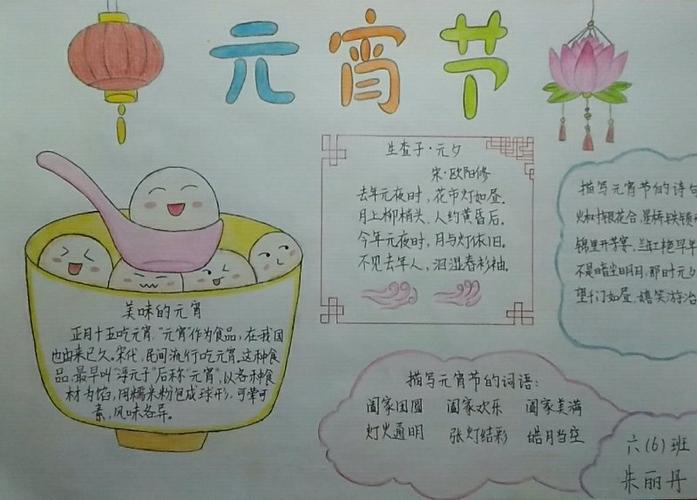 元宵节
生查子·元夕
宋·欧阳修
去年元夜时,花市灯如昼。
月上柳梢头,人约黄昏后。
今年元夜时,月与灯依旧。
不见去年人,泪湿春衫袖。
描写元宵节的诗句
火树银花合,星桥铁锁
锦里开芳宴,兰 艳早年
不 暗尘明月,那时元夕
望千门如昼,嬉笑游冶
美味的元宵
正月十五吃元宵,"元宵"作为食品,在我国
也由来已久。宋代,民间流行吃元宵。这种食
品,最早叫"浮元子"后称"元宵",以各种食
材为馅,用糯米粉包成球形,可荤可
素,风味各异。
描写元宵节的词语:
阖家团圆 阖家欢乐 阖家美满
灯火通明 张灯结彩 皓月当空
六(6)班
朱丽丹